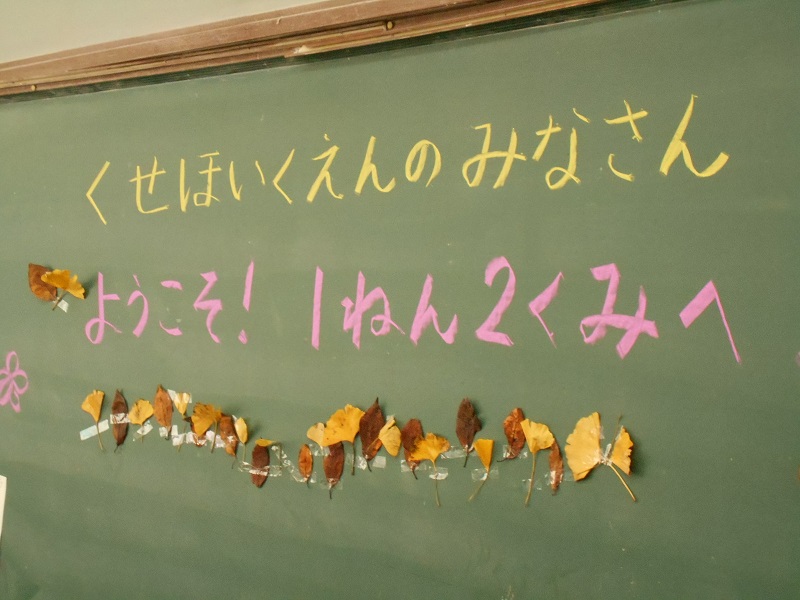 くせほいくえんのみなさん
ようこそ! 1ねん2くみへ